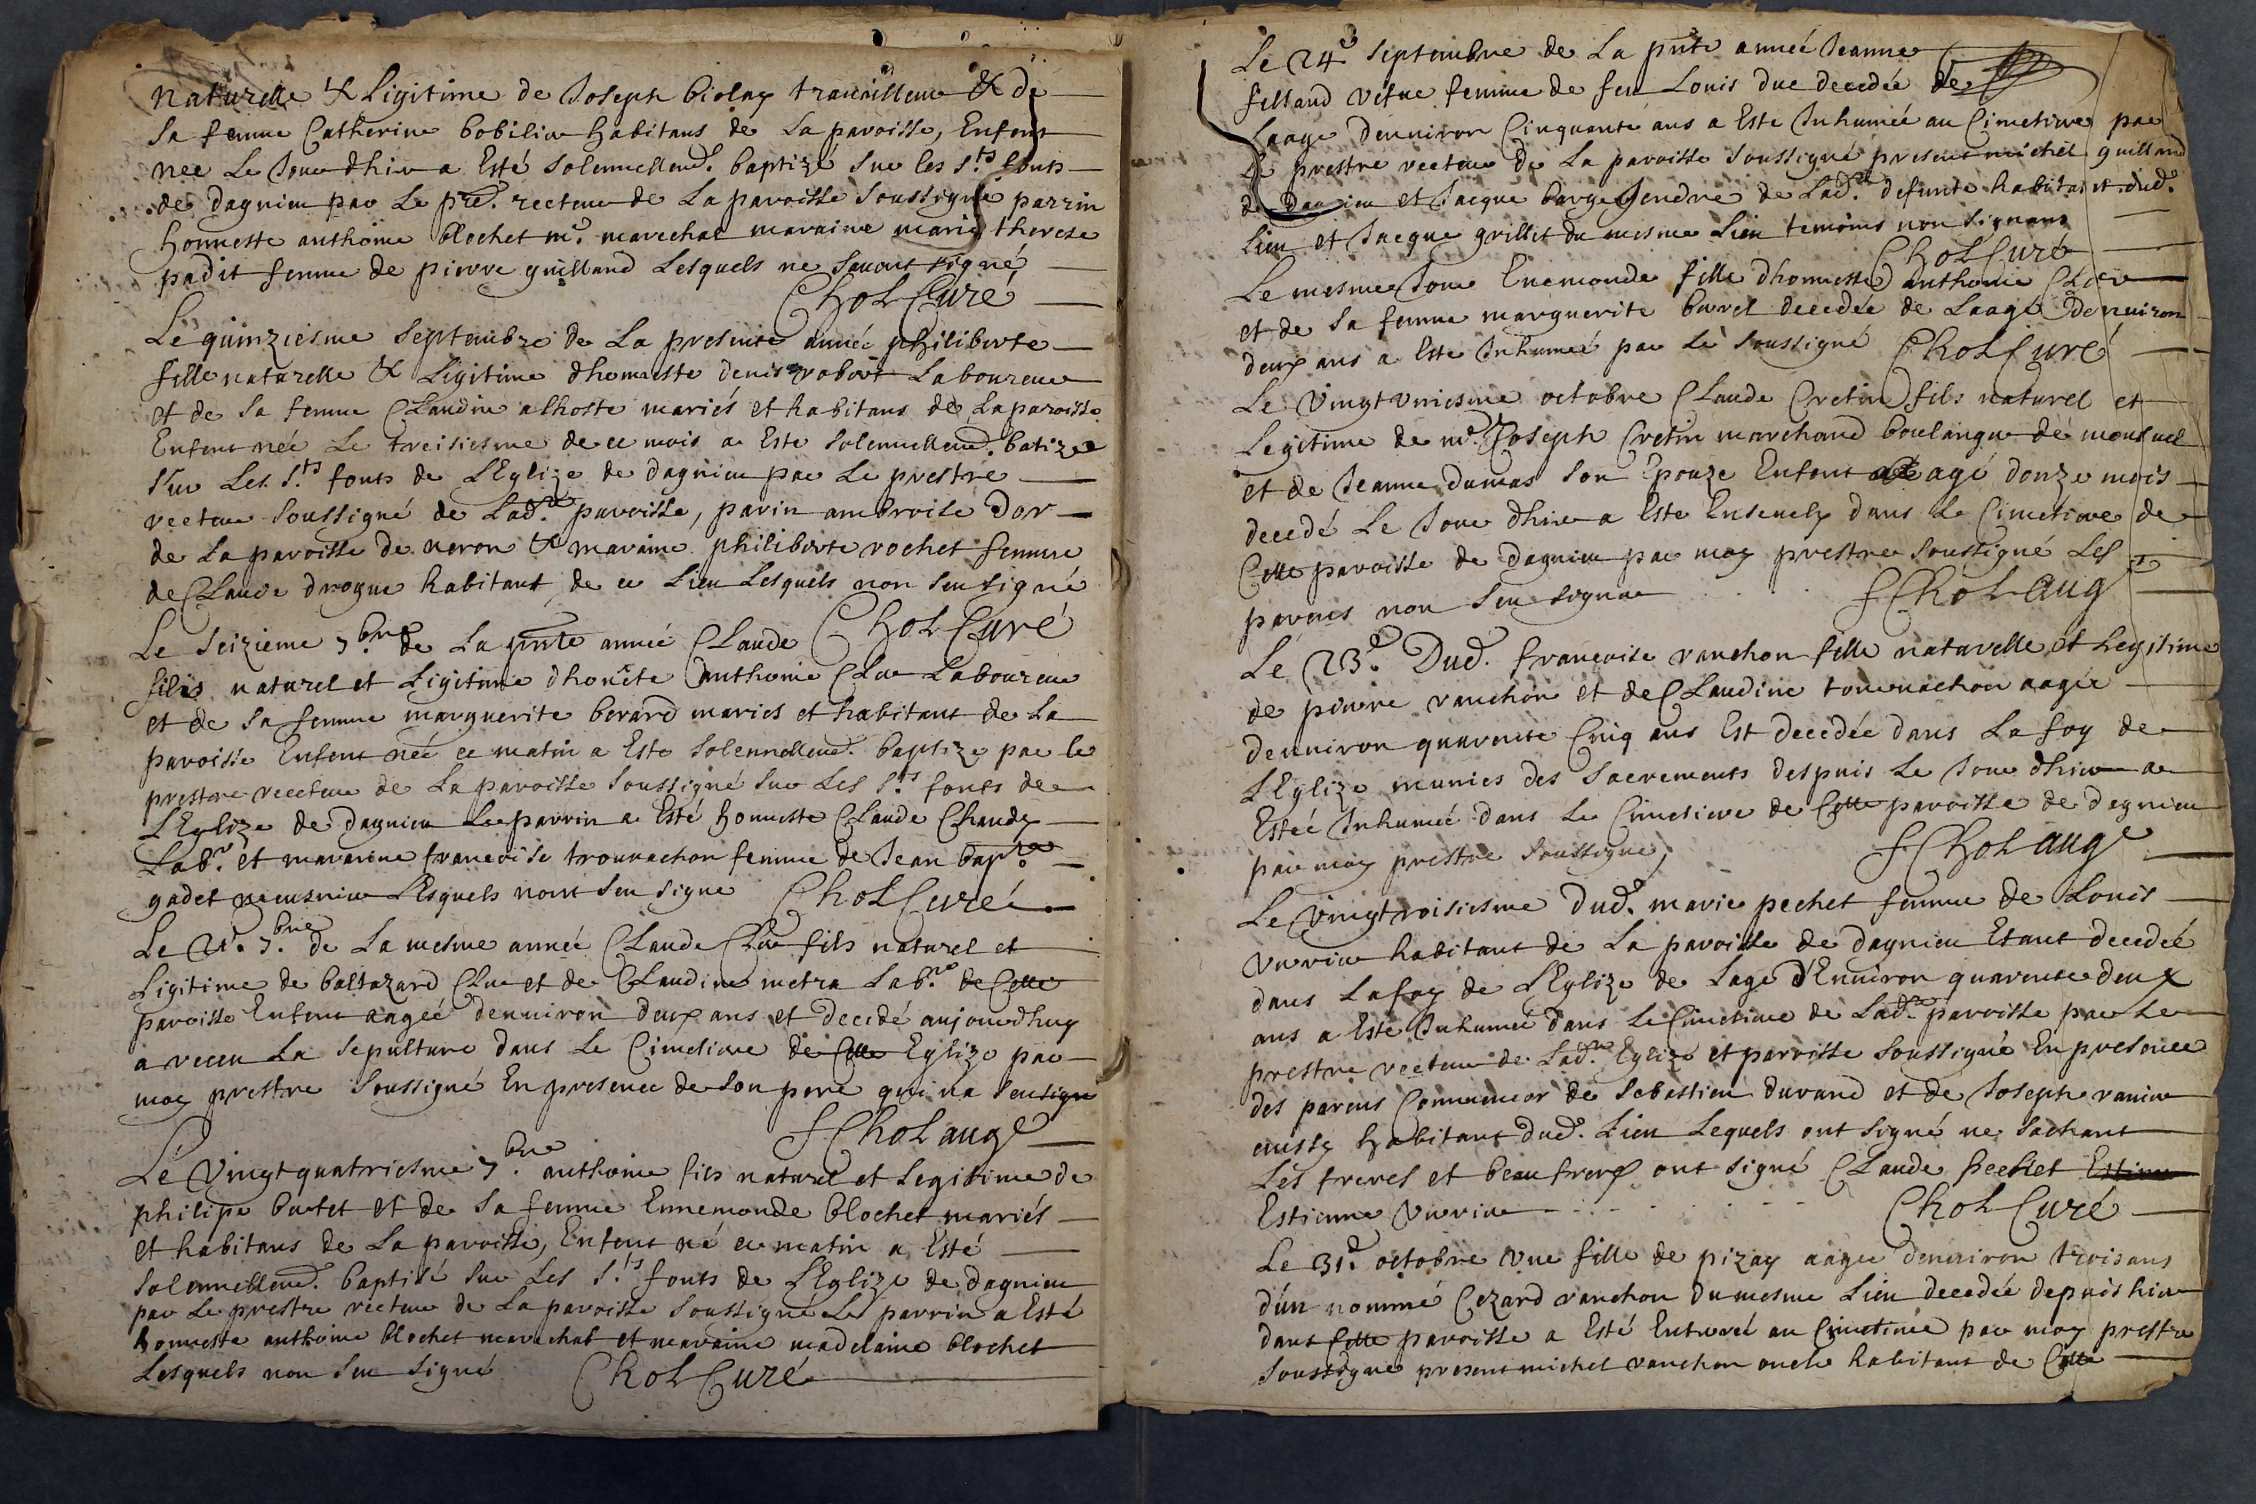 naturelle & Ligitime de Joseph Biolay travailleur & de
sa femme Catherine bobilier habitans de la paroisse, Enfent
nee Le Jour dhier a Esté solemnellemt. baptizé sur les Sts fonts
de dagnieu par Le pre. recteur de La paroisse soussigné parrin
honneste anthoine blochet me. marechal maraine marie therese
padit femme de pierre guilland Lesquels ne savent signé
Chol Curé
Le quinziesme septembre de La presente année philiberte
fille naturelle & Ligitime dhonneste denis robert Laboureur
et de sa femme Claudine alhoste mariés et habitans de la paroisse
Enfent née Le treisiesme de ce mois a Este solemnellemt. batizee
sur Les Sts fonts de LEglize de dagnieu par Le prestre
recteur soussigné de Lade. paroisse, parin ambroise Dor
de La paroisse de neron & maraine philiberte rochet femme
de Claude drogue habitant de ce Lieu Lesquels non seu signé
Chol Curé
Le seizieme 7bre de La pnte année Claude
filis naturel et Ligitime dhonete Anthoine Cler Laboureur
et de sa femme marguerite berard mariés et habitant de La
paroisse Enfent neé ce matin a Este solennellemt. baptize par le
prestre recteur de La paroisse soussigné sur Les Sts fonts de
LEglize de dagnieu Le parrin a Esté honneste Claude Chaudy
Labr. et maraine francoise trouvachon femme de Jean bapte
gadet meusnier Lesquels nont seu signe Chol Curé
Le 21e. 7bre de La mesme année Claude Cler fils naturel et
Ligitime de baltazard Cler et de Claudine metra Labr. de Cette
paroisse Enfent aagéé denviron deux ans et decedé aujourdhuy
a receu La sepulture dans Le Cimetiere de Cette Eglize par
moy prestre soussigné En presence de son pere qui na seu signe
f Chol aug
Le Vingtquatriesme 7bre anthoine fils naturel et Legitime de
philipe butet et de sa femme Ennemonde blochet mariés
et habitans de La paroisse, Enfent né ce matin a Esté
solennellemt. baptisé sur Les Sts fonts de LEglize de dagnieu
par Le prestre recteur de La paroisse soussigné Le parrin a Esté
honneste anthoine blochet marechal et maraine madelaine blochet
Lesquels non seu signé Chol Curé
Le 24e septembre de La pnte année Jeanne
felland vefue femme de feu Louis duc decedée de
Laage denviron Cinquante ans a Este Inhumeé au Cimetiere par
Le prestre recteur de La paroisse soussigné present michel guilland
de dagnieu et Jacque barge Gendre de Lade. defunte habitant dud.
Lieu et Jacque grillet du mesme Lieu temoins non signans
Chol Curé
Le mesme Jour Enemonde fille dhonneste anthoine Cler
et de sa femme marguerite burel decedée de Laage denviron
deux ans a Este Inhumeé par Le soussigné Chol Curé
Le Vingt Uniesme octobre Claude Cretin fils naturel et
Legitime de me. Joseph Cretin marchand boulanger de monluel
et de Jeanne dumas son Epouze Enfent agé donze mois
decedé Le Jour dhier a Este Ensevely dans Le Cimetiere de
Cette paroisse de dagnieu par moy prestre soussigné Les
parens non seu signer f Chol aug
Le 23e. Dud. francoise vanchon fille naturelle et Legitime
de pierre vanchon et de Claudine tournachon aagée
denviron quarente Cinq ans Est decedée dans La foy de
LEglize munies des sacrements despuis Le Jour dhier a
Esteé Inhumeé dans Le Cimetiere de Cette paroisse de dagnieu
par moy prestre soussigné, f Chol aug
Le Vingtroisiesme Dud. marie pechet femme de Louis
Vuvier habitant de La paroisse de dagnieu Etant decedeé
dans La foy de LEglize de Lage d'Environ quarente deux
ans a Este Inhumeé dans Le Cimetiere de Lade. paroisse par Le
prestre recteur de Lade. Eglize et paroisse soussigné En presence
des parens Comme de Sebastien durand et de Joseph
aussy habitant dud. Lieu Lequels ont signé ne sachant
Les freres et beau frere ont signé Claude pechet Estiene
Estienne Vuvier Chol Curé
Le 31e. octobre Une fille de pizay aagee denviron trois ans
d'un nommé Cezard vanchon du mesme Lieu decedée depuis hier
dans Cette paroisse a Esté Enterreé au Cimetiere par moy prestre
soussigne present michel vanchon oncle habitant de Cette